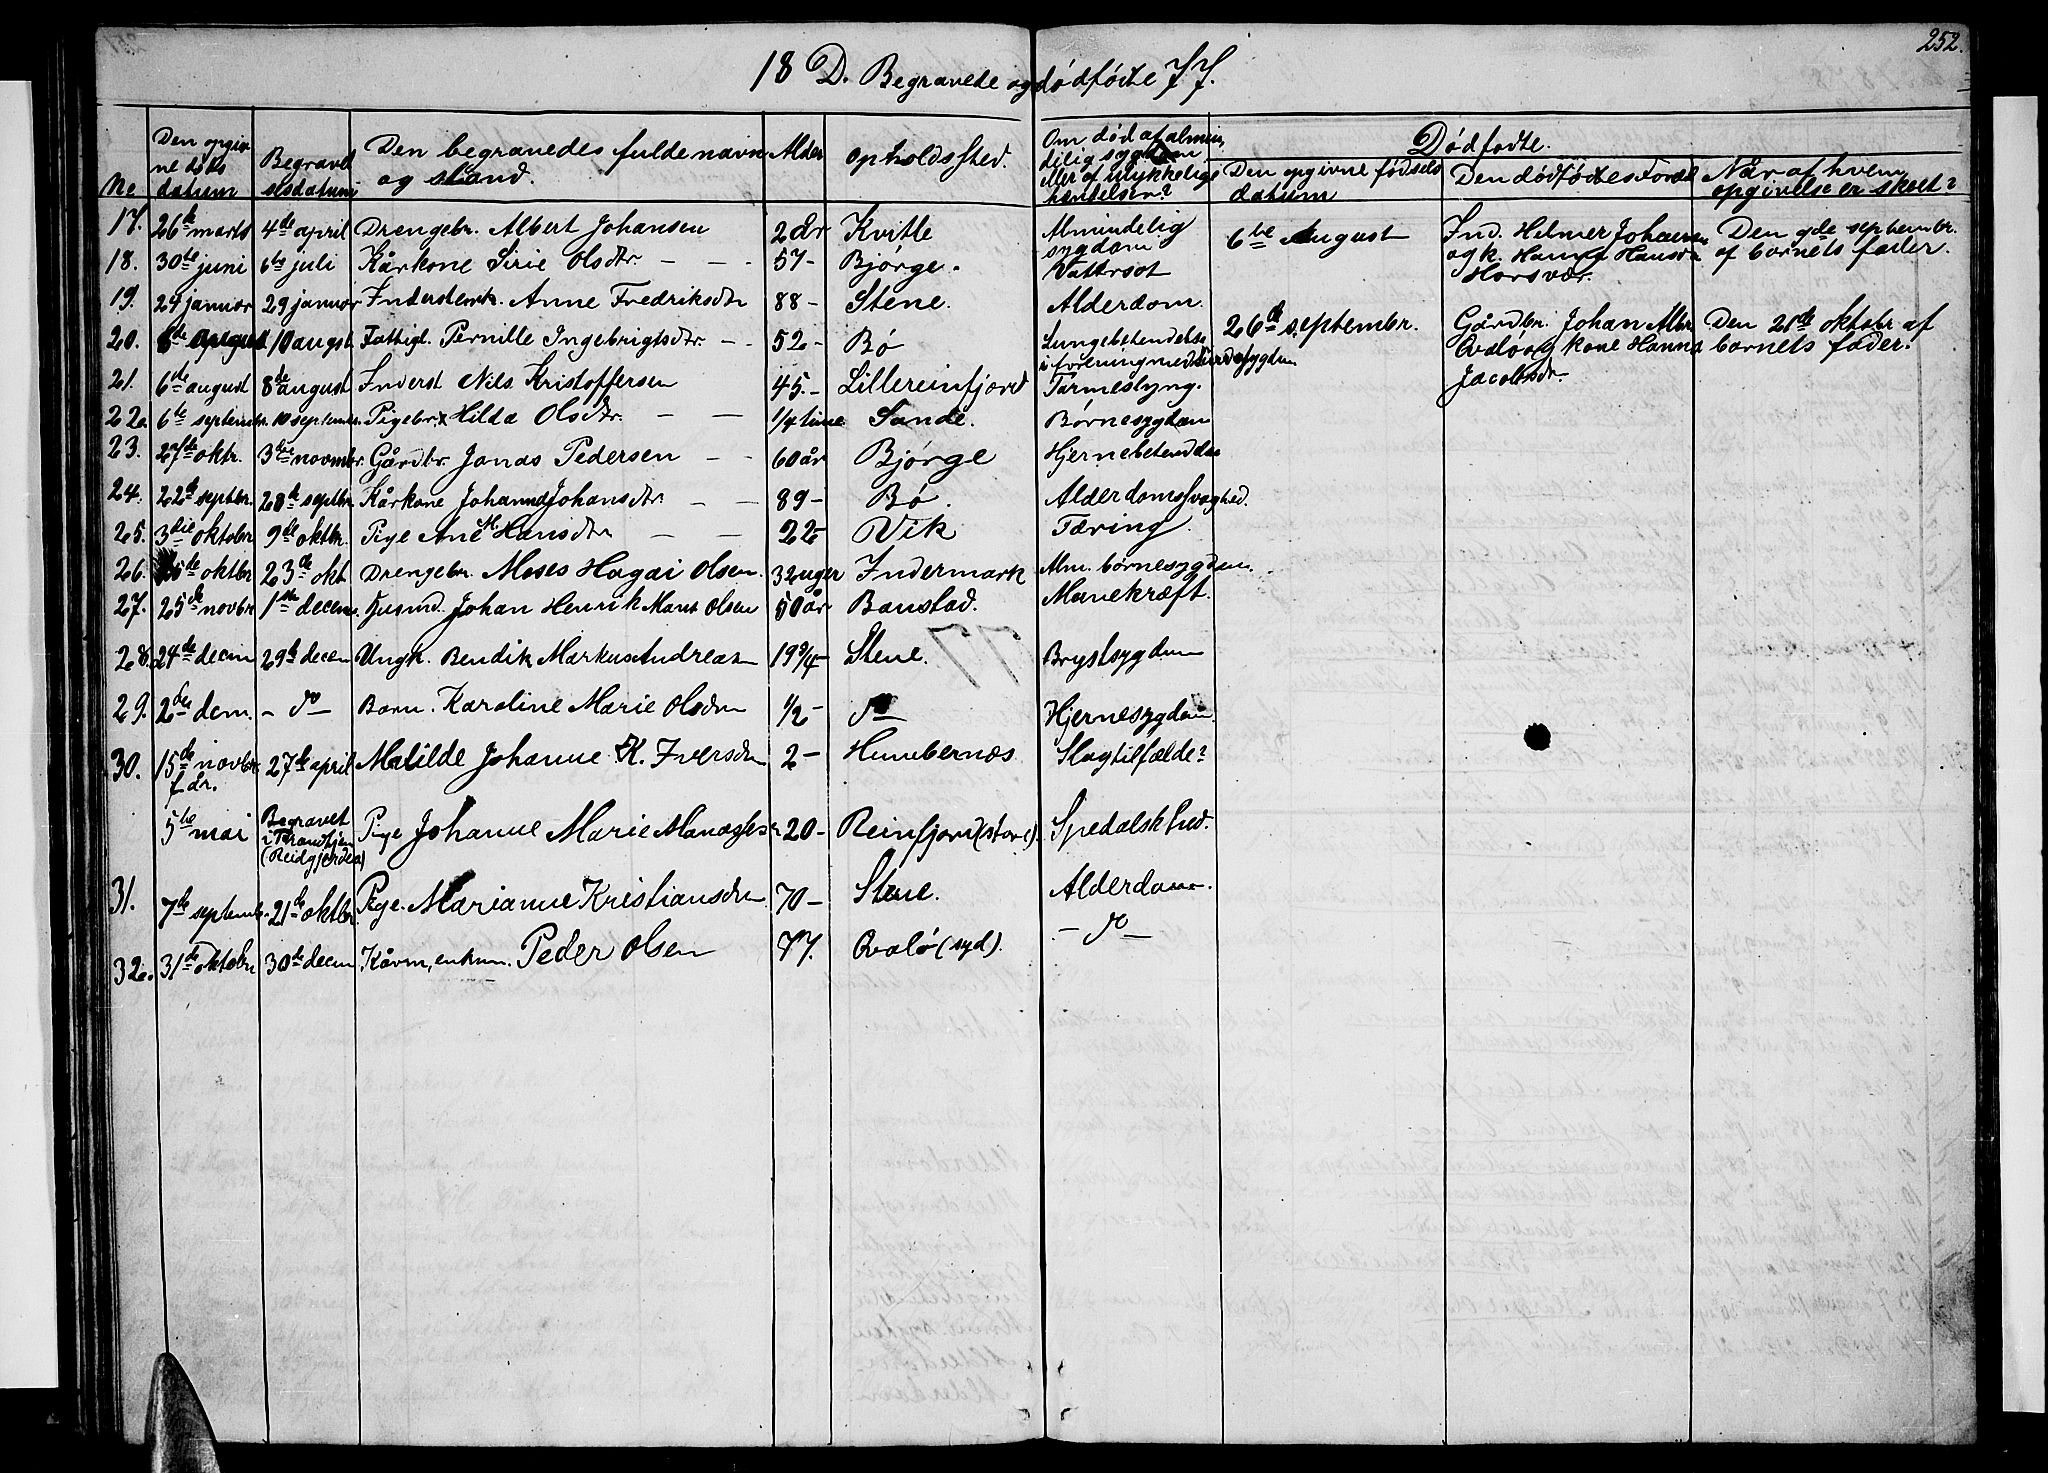 252.
18 D. Begravede og dødfødte 77.
No
Den opgivne døds datum
Begravelsesdatum
Den begravedes fulde navn og stand.
Alder
Opholdssted.
Om død af almindelig sygdom eller af ulykkelige hændelser?
Dødfødte.
Den opgivne fødsels datum
Den dødfødtes
Når af hvem opgivelse er skeet?
17. 26de marts 4de april Drengebr. Albert Johansen 2 år Kvitle Almindelig sygdom
18. 30te juni 6te juli Kårkone Sirie Olsdtr. — — 57 - Bjørge. Vattersot
19. 24 januar 29 januar Anne Fredriksdtr 88 - Stene. Alderdom.
20. 6te august 10 augst. Fattigl. Pernille Ingebrigtsdtr. — — 52 - Bø Lungebetendelse i forening med
21. 6te august 8de august Inderst Nils Kristoffersen 45. - Lillereinfjord Tarmeslyng.
22. 6te septembr. 10 septembr. Pigebr. Hilda Olsdtr. — — 1/4 time Sande. Børnesygdom
23. 27de oktr. 3die novmbr. Gårdbr. Jonas Pedersen — — 60 år Bjørge Hjernebetendelse
24. 22de septbr. 28de septbr. Kårkone Johanna Johansdtr. — — 89 - Bø. Alderdomssvaghed.
25. 3die oktober 9de oktbr. Pige Ane M. Hansdtr — — 22 - Vik Tæring.
26. oktbr 23de okt. Drengebr. Moses Hagai Olsen. 3 uger Indermark Alm. børnesygdom.
27. 25de novbr 1ste decem. Husmd. Johan Henrik Olsen 50 år Baustad. Mavekræft.
28. 24de decm 29de decem Ungk. Bendik Markus Andreasn 19 3/4 - Stene. Brystsygdom
29. 2den dem. - do — Barn. Karoline Marie Olsdtr 1/2 - do Hjernesygdom.
30. 15de novbr f. år. 27de april Matilde Johanne K. Iversdtr 2 - Hunebernæs Slagtilfælde?
5te mai Begravet i Trondhjem (Reidgjerdet) Pige Johanne Marie 20 - Reinfjord (store). Spedalskhed.
31. 7de septembr. 21de oktbr. Pige. Marianne Kristiansdtr 70 - Stene. Alderdom.
32. 31de oktobr 30te decm Kårm, enkem. Peder Olsen 77. Qvalø (syd). - do —
6te August Ind. Helmer Johansen og k. Hanna Hansdtr Horsvær. Den 9de septembr. af barnets fader.
26de septembr. Gårdbr. Johan Albr. Qvalø og kone Hanna Jacobsdr. Den 21de oktobr af barnets fader.